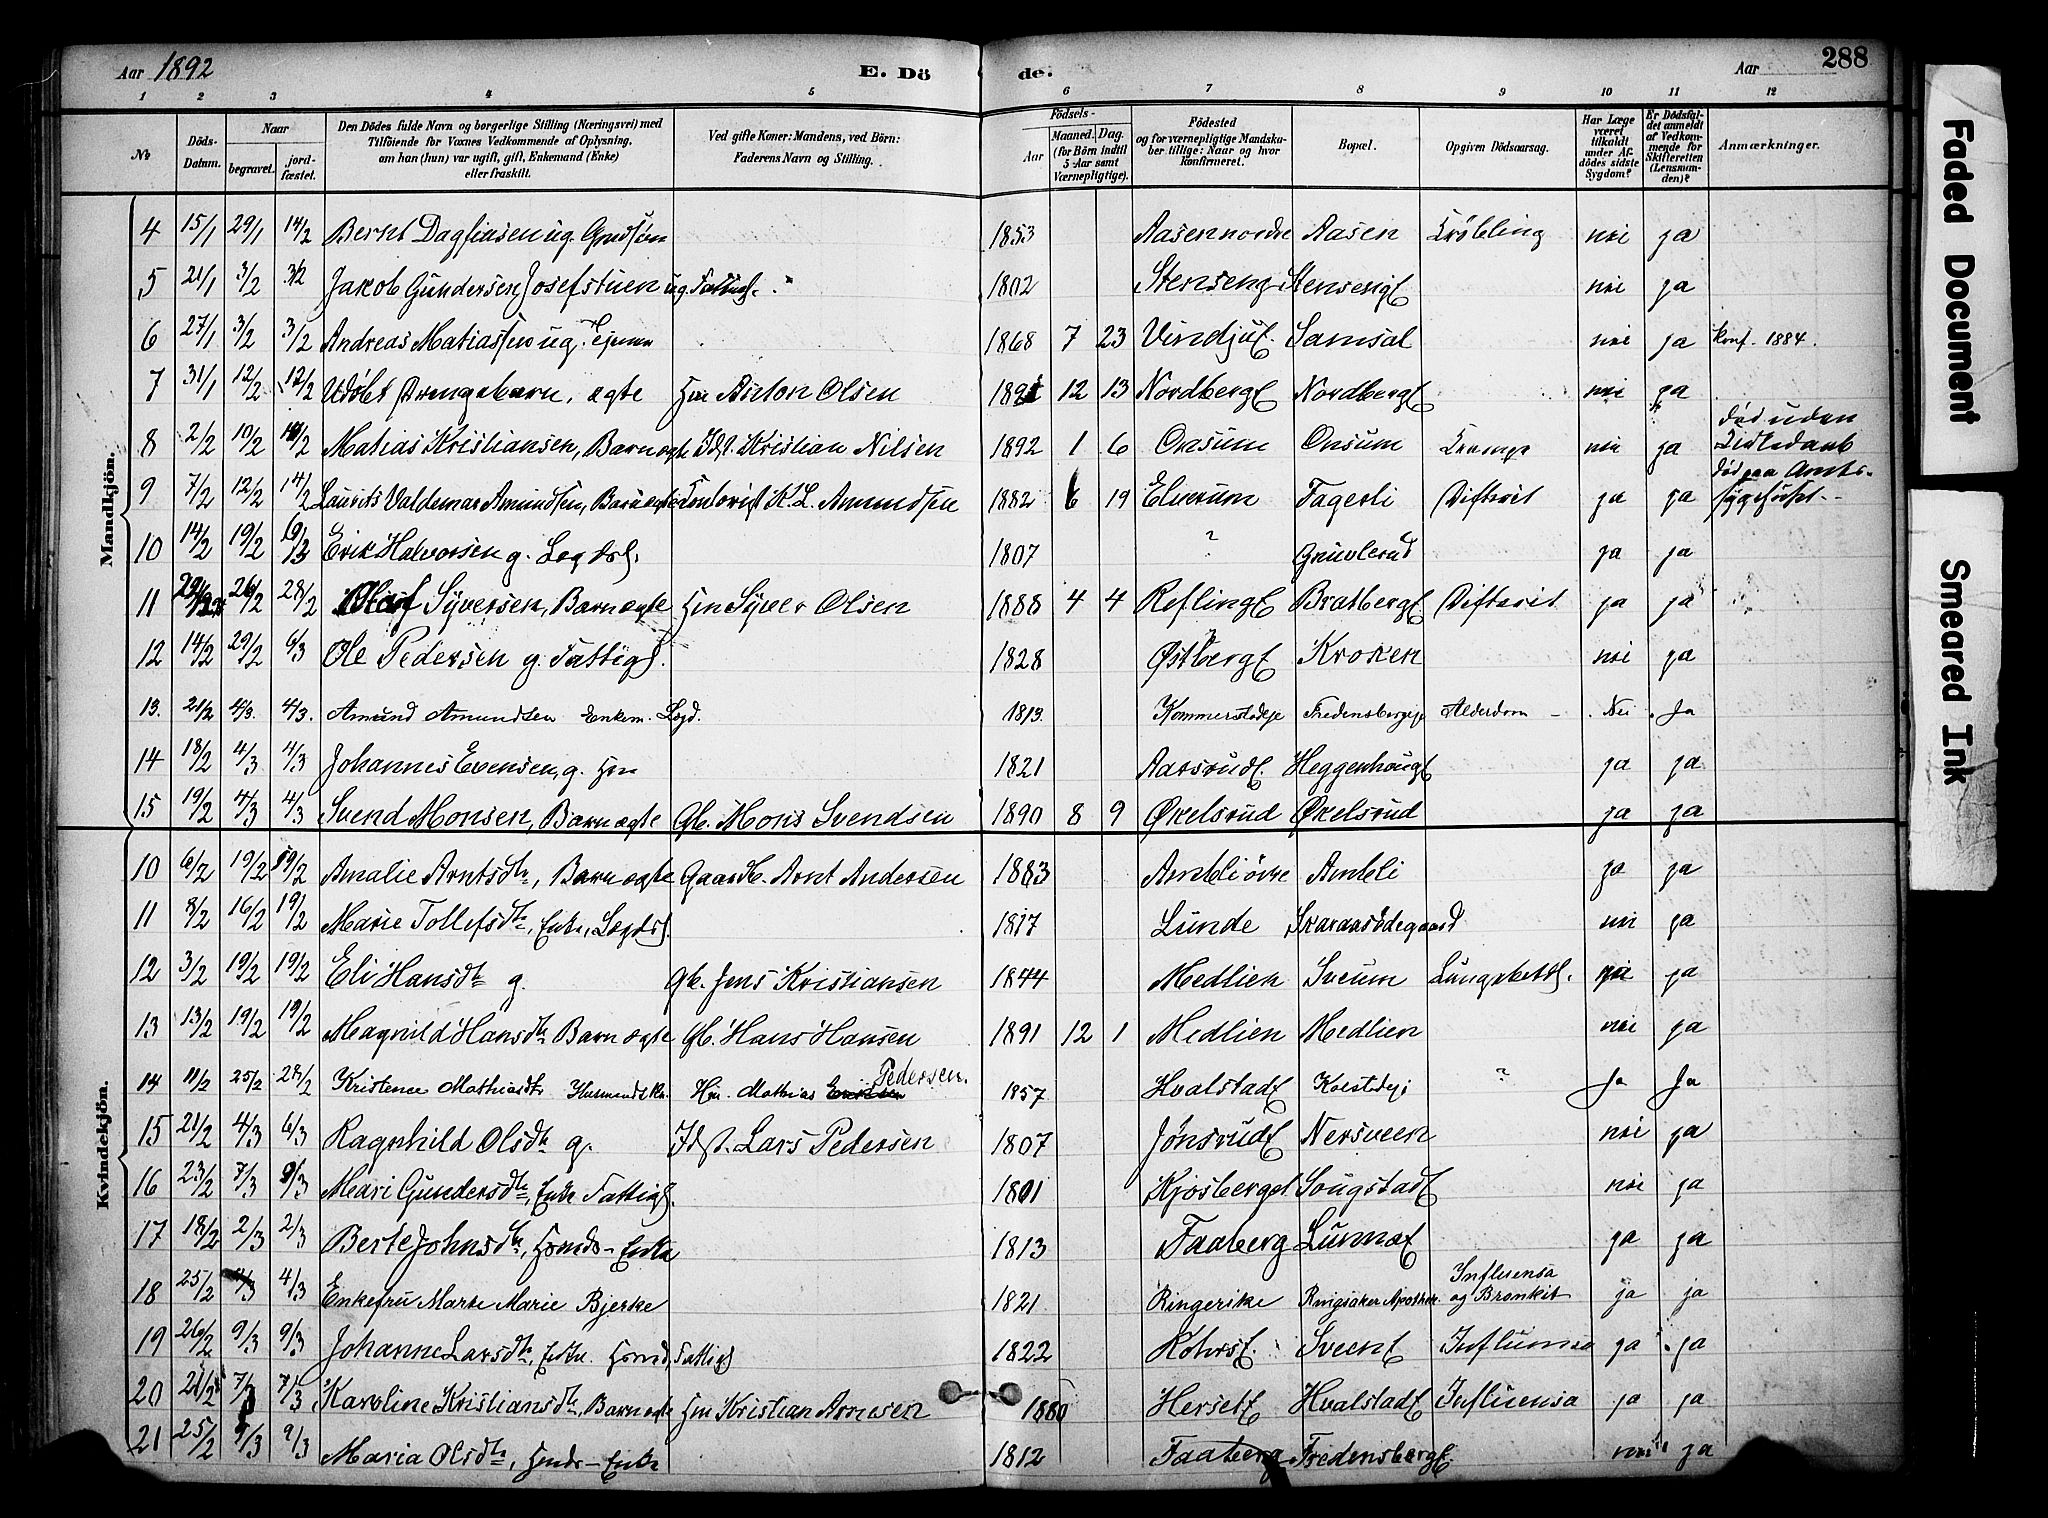 Aar 1892 E. Dö de. Aar 288
1 2 3 4 5 6 7 8 9 10 11 12
No
Döds-Datum.
Naar
begravet.
jord-fæstet.
Den Dödes fulde Navn og borgerlige Stilling (Næringsvei) med
Tilföiende for Voxnes Vedkommende af Oplysning,
om han (hun) var ugift, gift, Enkemand (Enke)
eller fraskilt.
Ved gifte Koner: Mandens, ved Börn:
Faderens Navn og Stilling.
Födsels-
Aar
Maaned. Dag.
(for Börn indtil
5 Aar samt
Værnepligtige).
Födested
og for værnepligtige Mandska-
ber tillige: Naar og hvor
konfirmeret.
Bopæl.
Opgiven Dödsaarsag.
Har Læge
været
tilkaldt
under Af-
dödes sidste
Sygdom?
Er Dödsfal-
det anmeldt
af Vedkom-
mende for
Skifteretten
(Lensman-
den)?
Anmærkninger.
Mandkjön.
4 15/1 29/1 14/2 Bernt Dagfinsen ug. 1853 Aasen nordre Aasen nei ja
5 21/1 3/2 3/2 Jakob Gundersen Josefstuen ug. 1802 Stenseng Stensengf nei ja
6 27/1 3/2 3/2 Andreas Matiassen ug. 1868 7 23 Samsal nei ja Konf. 1884.
7 31/1 12/2 12/2 Udøbt Drengebarn, ægte Hm Anton Olsen 1891 12 13 Nordbergf Nordbergf nei ja
8 2/2 10/2 14/2 Matias Kristiansen, Barn ægte Idst. Kristian Nilsen 1892 1 6 Onsum Onsum Krampe nei ja Død uden Lidtedaab
9 7/2 12/2 14/2 Laurits Valdemar Amundsen, Barn ægte K. L. Amundsen 1882 6 19 Elverum Fagerli Difterit ja ja Død paa Amts-sygehuset
10 14/2 19/2 Erik Halvorsen g. Lægdsl. 1807 ? Gruvlerud ja ja
11 26/2 28/2 Olaf Syversen, Barn ægte Hm Syver Olsen 1888 4 4 Reflingf Bratbergf Difterit ja ja
12 14/2 29/2 6/3 Ole Pedersen g. Fattigl. 1828 Østbergf Kroken nei ja
13. 21/2 4/3. 4/3. Amund Amundsen Enkem. Lægd. 1813 Kommerstadeje Fredensbergeje Alderdom - Nei Ja
14 18/2 4/3 4/3 Johannes Evensen, g. Hm 1821 Aarsrudf. Heggenhougf ja ja
15 19/2 4/3 4/3 Svend Monsen, Barn ægte Gb. Mons Svendsen 1890 8 9 Økelsrud Økelsrud ja ja
Kvindekjön.
10 6/2 19/2 19/2 Amalie Arntsdtr, Barn ægte Gaardb. Arnt Andersen 1883 Amtli övre Amtli ja ja
11 8/2 16/2 19/2 Marie Tollefsdtr, Enke, Lægdsl. 1817 Lunde nei ja
12 3/2 19/2 19/2 Eli Hansdtr g. Gb. Jens Kristiansen 1844 Medlien Sveum ja
13 13/2 19/2 19/2 Magnhild Hansdtr Barn ægte Gb. Hans Hansen 1891 12 1 Medlien Medlien nei ja
14 11/2 25/2 28/2 Kristence Mathiasdtr Husmandskn. Hm. Mathias Pedersen. 1857 Hvalstadf ? Ja Ja
15 21/2 4/3 6/3 Ragnhild Olsdtr g. Idst. Lars Pedersen 1807 Jönsrudf Nersveen nei ja
16 23/2 7/3 9/3 Mari Gundersdtr, Enke Fattigl. 1801 Kjosberget Sougstadf nei ja
17 18/2 2/3 2/3 Berte Johnsdtr, Hsmds-Enke 1813 Faaberg Lunnaf ja ja
18 25/2 4/3 4/3 Enkefru Marte Marie Bjerke 1821 Ringerike Ringsaker Apothek Influensa og Bronkit ja ja
19 26/2 9/3 9/3 Johanne Larsdtr, Enke. Hsmd, Fattigl 1822 Sveenf Influensa ja ja
20 7/3 7/3 Karoline Kristiansdtr, Barn ægte Hm Kristian Arnesen 1880 Hersetf Hvalstadf Influensa ja ja
21 25/2 9/3 9/3 Maria Olsdtr, Hsmds-Enke 1812 Faaberg Fredensbergf. nei ja
Faded Document
Smeared Ink